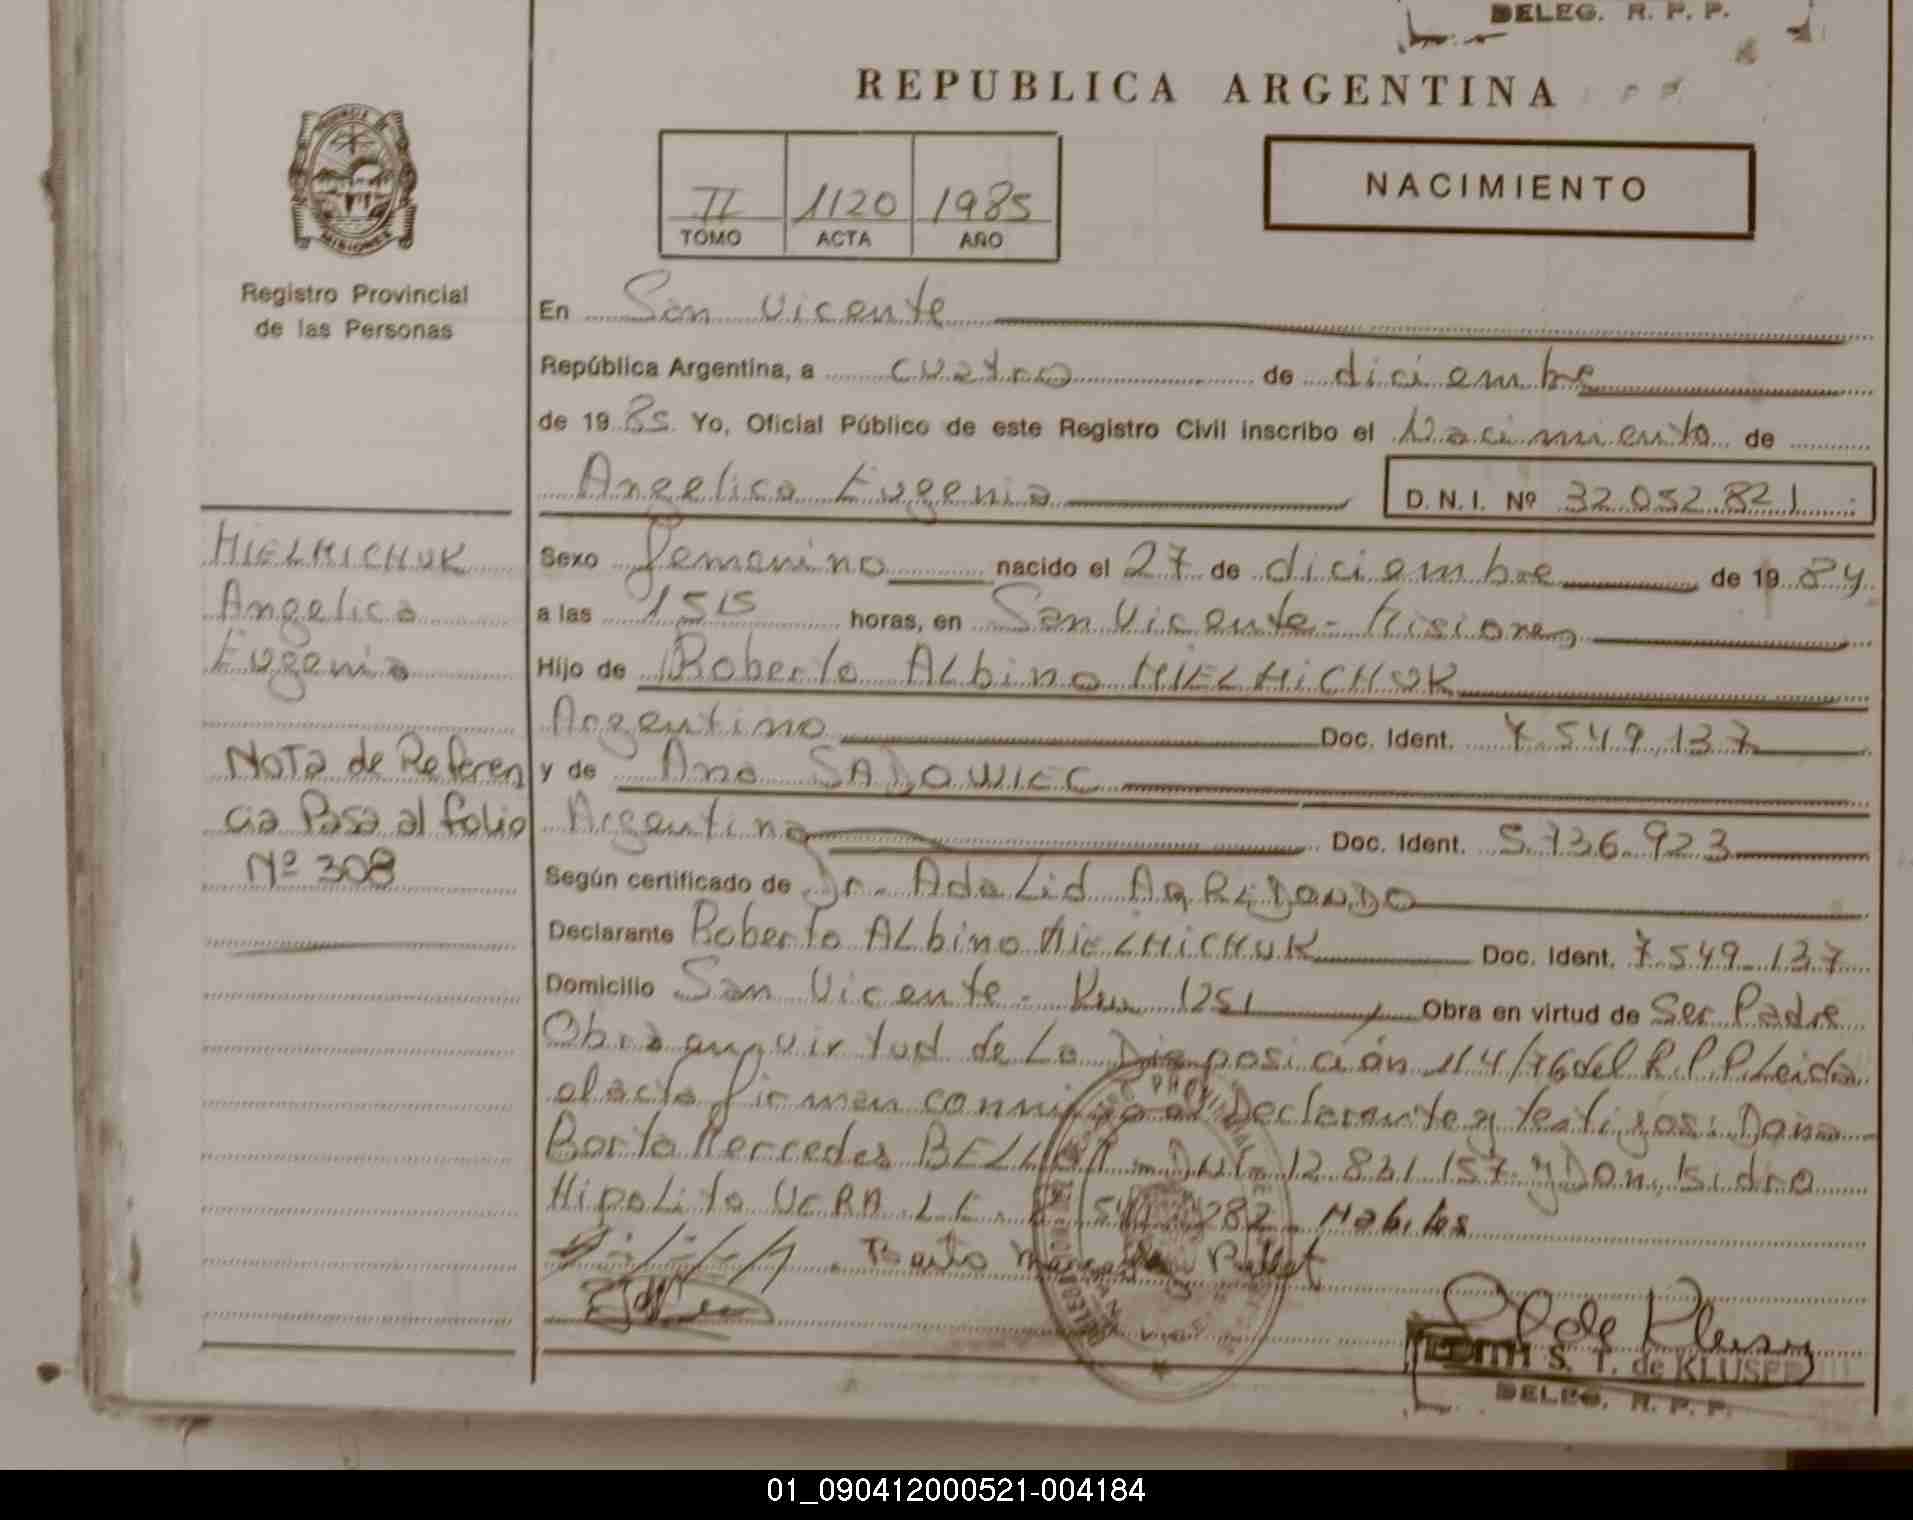 DELEG. R. P. P.
REPUBLICA ARGENTINA
PROVINCIA DE
MISIONES
Registro Provincial
de las Personas
II 1120 1985
TOMO ACTA AÑO
NACIMIENTO
En San Vicente
República Argentina, a cuatro de diciembre
de 1985 Yo, Oficial Público de este Registro Civil inscribo el Nacimiento de
Angelica Eugenia D.N.I. Nº 32.052.821
Sexo femenino nacido el 27 de diciembre de 1984
a las 1515 horas, en San Vicente - Misiones
Hijo de Roberto Albino MIELMICHUK
Argentino Doc. Ident. 7.549.137
y de Ana SADOWIEC
Argentina Doc. Ident. 5.736.923
Según certificado de Dr. Adalid ARREDONDO
Declarante Roberto Albino MIELMICHUK Doc. Ident. 7.549.137
Domicilio San Vicente - Km 1251 Obra en virtud de Ser Padre
Obra en virtud de La Disposición 114/76 del R.P.P. Leida
el acta firman conmigo el Declarante y testigos: Doña
Berta Mercedes DNI 12.831.157 y Don Isidro
Hipolito VERA L.E. 282 - Habiles
MIELMICHUK
Angelica
Eugenia
Nota de Referen
cia Pasa al folio
Nº 308
S. T. de KLUSER
DELEG. R. P. P.
01_090412000521-004184